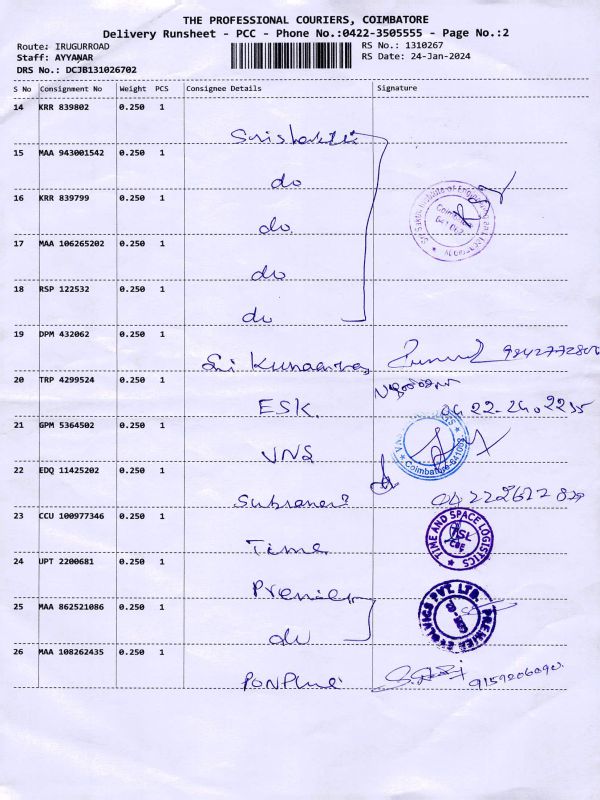 THE PROFESSIONAL COURIERS, COIMBATORE
Delivery Runsheet - PCC - Phone No.:0422-3505555 - Page No.:2
Route: IRUGURROAD
RS No.: 1310267
Staff: AYYANAR
RS Date: 24-Jan-2024
DRS No.: DCJB131026702
S No Consignment No Weight PCS Consignee Details Signature
14 KRR 839802 0.250 1
15 MAA 943001542 0.250 1
do
16 KRR 839799 0.250 1
do
17 MAA 106265202 0.250 1
do
18 RSP 122532 0.250 1
do
19 DPM 432062 0.250 1
Sri
20 TRP 4299524 0.250 1
ESK
21 GPM 5364502 0.250 1
VNS
22 EDQ 11425202 0.250 1
23 CCU 100977346 0.250 1
Time
TIME AND SPACE LOGISTICS
24 UPT 2200681 0.250 1
Premier
25 MAA 862521086 0.250 1
do
26 MAA 108262435 0.250 1